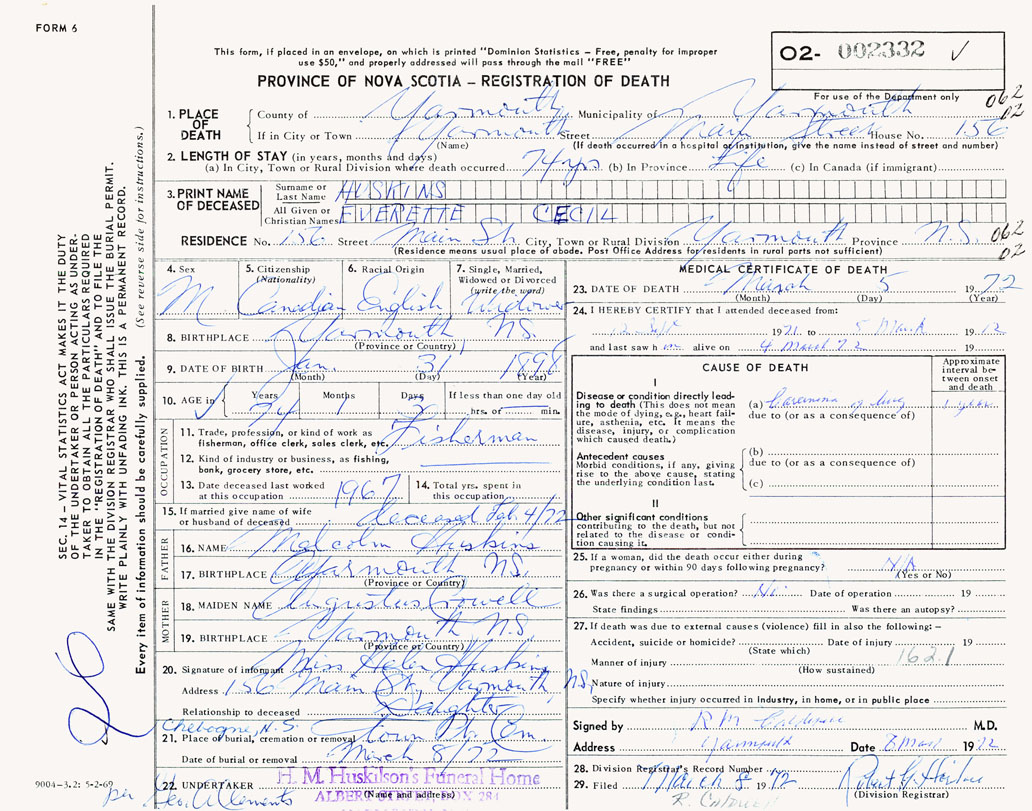 FORM 6
This form, if placed in an envelope, on which is printed "Dominion Statistics – Free, penalty for improper
use $50," and properly addressed will pass through the mail "FREE"
PROVINCE OF NOVA SCOTIA – REGISTRATION OF DEATH
O2- 002332 ✓
For use of the Department only
062
02
1. PLACE OF DEATH
County of Yarmouth Municipality of Yarmouth
If in City or Town Yarmouth Street Main Street House No. 156
(Name) (If death occurred in a hospital or institution, give the name instead of street and number)
2. LENGTH OF STAY (in years, months and days)
(a) In City, Town or Rural Division where death occurred 74 yrs (b) In Province Life (c) In Canada (if immigrant)
3. PRINT NAME OF DECEASED
Surname or Last Name HUSKINS
All Given or Christian Names EVERETTE CECIL
RESIDENCE No. 156 Street Main St. City, Town or Rural Division Yarmouth Province N.S.
(Residence means usual place of abode. Post Office Address for residents in rural parts not sufficient)
062
02
4. Sex M
5. Citizenship (Nationality) Canadian
6. Racial Origin English
7. Single, Married, Widowed or Divorced (write the word) Widower
8. BIRTHPLACE Yarmouth N.S.
(Province or Country)
9. DATE OF BIRTH Jan. 31 1898
(Month) (Day) (Year)
10. AGE in Years Months Days If less than one day
74 1 hrs. or min.
OCCUPATION
11. Trade, profession, or kind of work as fisherman, office clerk, sales clerk, etc. Fisherman
12. Kind of industry or business, as fishing, bank, grocery store, etc.
13. Date deceased last worked at this occupation 1967
14. Total yrs. spent in this occupation
15. If married give name of wife or husband of deceased deceased Feb. 4/72
FATHER
16. NAME Malcolm Huskins
17. BIRTHPLACE Yarmouth N.S.
(Province or Country)
MOTHER
18. MAIDEN NAME Augustus Crowell
19. BIRTHPLACE Yarmouth N.S.
(Province or Country)
20. Signature of informant Miss Helen Huskins
Address 156 Main St. Yarmouth N.S.
Relationship to deceased Daughter
Chebogue, N.S.
21. Place of burial, cremation or removal Town Pt. Cem
Date of burial or removal March 8/72
22. UNDERTAKER H. M. Huskilson's Funeral Home
(Name and address)
BOX 284
per Geo. A Clements
MEDICAL CERTIFICATE OF DEATH
23. DATE OF DEATH March 5 1972
(Month) (Day) (Year)
24. I HEREBY CERTIFY that I attended deceased from:
1971 to 5 March 19
and last saw h im alive on 4 March 72 19
CAUSE OF DEATH
Approximate interval between onset and death
I
Disease or condition directly leading to death (This does not mean the mode of dying, e.g., heart failure, asthenia, etc. It means the disease, injury, or complication which caused death.)
(a) Carcinoma of lung 1 year
due to (or as a consequence of)
Antecedent causes
Morbid conditions, if any, giving rise to the above cause, stating the underlying condition last.
(b)
due to (or as a consequence of)
(c)
II
Other significant conditions
contributing to the death, but not related to the disease or condition causing it.
25. If a woman, did the death occur either during pregnancy or within 90 days following pregnancy? N/A
(Yes or No)
26. Was there a surgical operation? Date of operation 19
State findings Was there an autopsy?
27. If death was due to external causes (violence) fill in also the following: –
Accident, suicide or homicide? Date of injury 19
(State which)
162.1
Manner of injury
(How sustained)
Nature of injury
Specify whether injury occurred in industry, in home, or in public place
Signed by R M M.D.
Address Yarmouth Date 8 Mar 1972
28. Division Registrar's Record Number
29. Filed March 8 1972
(Division Registrar)
SEC. 14 – VITAL STATISTICS ACT MAKES IT THE DUTY
OF THE UNDERTAKER OR PERSON ACTING AS UNDER-
TAKER TO OBTAIN ALL THE PARTICULARS REQUIRED
IN THE "REGISTRATION OF DEATH" AND TO FILE THE
SAME WITH THE DIVISION REGISTRAR WHO SHALL ISSUE THE BURIAL PERMIT.
WRITE PLAINLY WITH UNFADING INK. THIS IS A PERMANENT RECORD.
Every item of information should be carefully supplied. (See reverse side for instructions.)
9004-3.2: 5-2-69